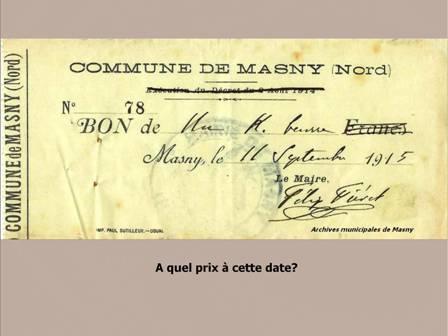 COMMUNE de MASNY (Nord)
COMMUNE DE MASNY (Nord)
Exécution du Décret du 2 Août 1914
N° 78
BON de Un K. beurre Francs
Masny, le 11 Septembre 1915
Le Maire,
IMP. PAUL DUTILLEUX.—DOUAI.
Archives municipales de Masny
A quel prix à cette date?